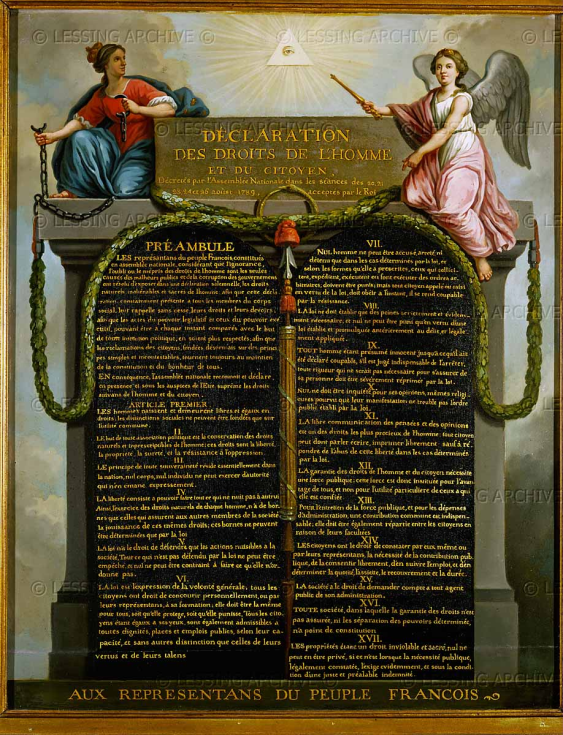 LESSING ARCHIVE
DÉCLARATION
DES DROITS DE L'HOMME
ET DU CITOYEN,
Décrétés par l'Assemblée Nationale dans les séances des 20, 21
23, 24 et 26 aoust 1789, acceptés par le Roi
PRÉAMBULE
LES représentans du peuple Francois, constitués
en assemblée nationale, considérant que l'ignorance,
l'oubli ou le mépris des droits de l'homme sont les seules
causes des malheurs publics et de la corruption des gouvernemens
ont résolu d'exposer dans une déclaration solemnelle, les droits
naturels, inaliénables et sacrés de l'homme: afin que cette décla
ration, constamment présente a tous les membres du corps
social, leur rappelle sans cesse leurs droits et leurs devoirs;
afin que les actes du pouvoir législatif et ceux du pouvoir exé
cutif, pouvant être a chaque instant comparés avec le but
de toute institution politique, en soient plus respectés; afin que
les réclamations des citoyens, fondées désormais sur des princi
pes simples et incontestables, tournent toujours au maintien
de la constitution et du bonheur de tous.
EN conséquence, l'assemblée nationale reconnoit et déclare
en présence et sous les auspices de l'Etre suprême les droits
suivans de l'homme et du citoyen.
ARTICLE PREMIER
LES hommes naissent et demeurent libres et égaux en
droits; les distinctions sociales ne peuvent être fondées que sur
l'utilité commune.
II.
LE but de toute association politique est la conservation des droits
naturels et imprescriptibles de l'homme; ces droits sont la liberté,
la propriété, la sureté, et la résistance à l'oppression.
III
LE principe de toute souveraineté réside essentiellement dans
la nation, nul corps, nul individu ne peut exercer d'autorité
qui n'en émane expressément.
IV
LA liberté consiste à pouvoir faire tout ce qui ne nuit pas à autrui
Ainsi, l'exercice des droits naturels de chaque homme, n'a de bor-
nes que celles qui assurent aux autres membres de la société
la jouissance de ces mêmes droits; ces bornes ne peuvent
être déterminées que par la loi
V.
LA loi n'a le droit de défendre que les actions nuisibles à la
société. Tout ce qui n'est pas défendu par la loi ne peut être
empêché, et nul ne peut être contraint à faire ce qu'elle n'or-
donne pas.
VI.
LA loi est l'expression de la volonté générale; tous les
citoyens ont droit de concourir personnellement, ou par
leurs représentans, à sa formation; elle doit être la même
pour tous, soit qu'elle protege, soit qu'elle punisse. Tous les cito-
yens étant égaux à ses yeux, sont également admissibles à
toutes dignités, places et emplois publics, selon leur ca-
pacité, et sans autres distinction que celles de leurs
vertus et de leurs talens.
VII.
NUL homme ne peut être accusé, arreté, ni
détenu que dans les cas déterminés par la loi, et
selon les formes qu'elle a prescrites, ceux qui sollici-
tent, expédient, exécutent ou font exécuter des ordres ar-
bitraires, doivent être punis; mais tout citoyen appelé ou saisi
en vertu de la loi, doit obéir à l'instant, il se rend coupable
par la résistance.
VIII.
LA loi ne doit établir que des peines strictement et évidem-
ment nécessaire, et nul ne peut être puni qu'en vertu d'une
loi établie et promulguée antérieurement au délit, et légale
ment appliquée.
IX.
TOUT homme étant présumé innocent jusqu'à ce qu'il ait
été déclaré coupable, s'il est jugé indispensable de l'arrêter,
toute rigueur qui ne serait pas nécessaire pour s'assurer de
sa personne doit être sévèrement réprimée par la loi.
X.
NUL ne doit être inquiété pour ses opinions, mêmes religi
euses pourvu que leur manifestation ne trouble pas l'ordre
public établi par la loi.
XI.
LA libre communication des pensées et des opinions
est un des droits les plus precieux de l'homme; tout citoyen
peut donc parler, écrire, imprimer librement: sauf à ré-
pondre de l'abus de cette liberté dans les cas déterminés
par la loi.
XII.
LA garantie des droits de l'homme et du citoyen nécessite
une force publique; cette force est donc instituée pour l'avan-
tage de tous, et non pour l'utilité particuliere de ceux a qui
elle est confiée.
XIII.
POUR l'entretien de la force publique, et pour les dépenses
d'administration, une contribution commune est indispen-
sable; elle doit être également répartie entre les citoyens en
raison de leurs facultés.
XIV.
LES citoyens ont le droit de constater par eux même ou
par leurs représentans, la nécessité de la contribution pub
lique, de la consentir librement, d'en suivre l'emploi, et d'en
déterminer la quotité, l'assiette, le recouvrement et la durée.
XV.
LA société a le droit de demander compte a tout agent
public de son administration.
XVI.
TOUTE société, dans laquelle la garantie des droits n'est
pas assurée, ni la séparation des pouvoirs déterminée,
n'a point de constitution.
XVII.
LES propriétés étant un droit inviolable et sacré, nul ne
peut en être privé, si ce n'est lorsque la nécessité publique,
légalement constatée, l'exige evidemment, et sous la condi
tion d'une juste et préalable indemnité.
AUX REPRESENTANS DU PEUPLE FRANCOIS